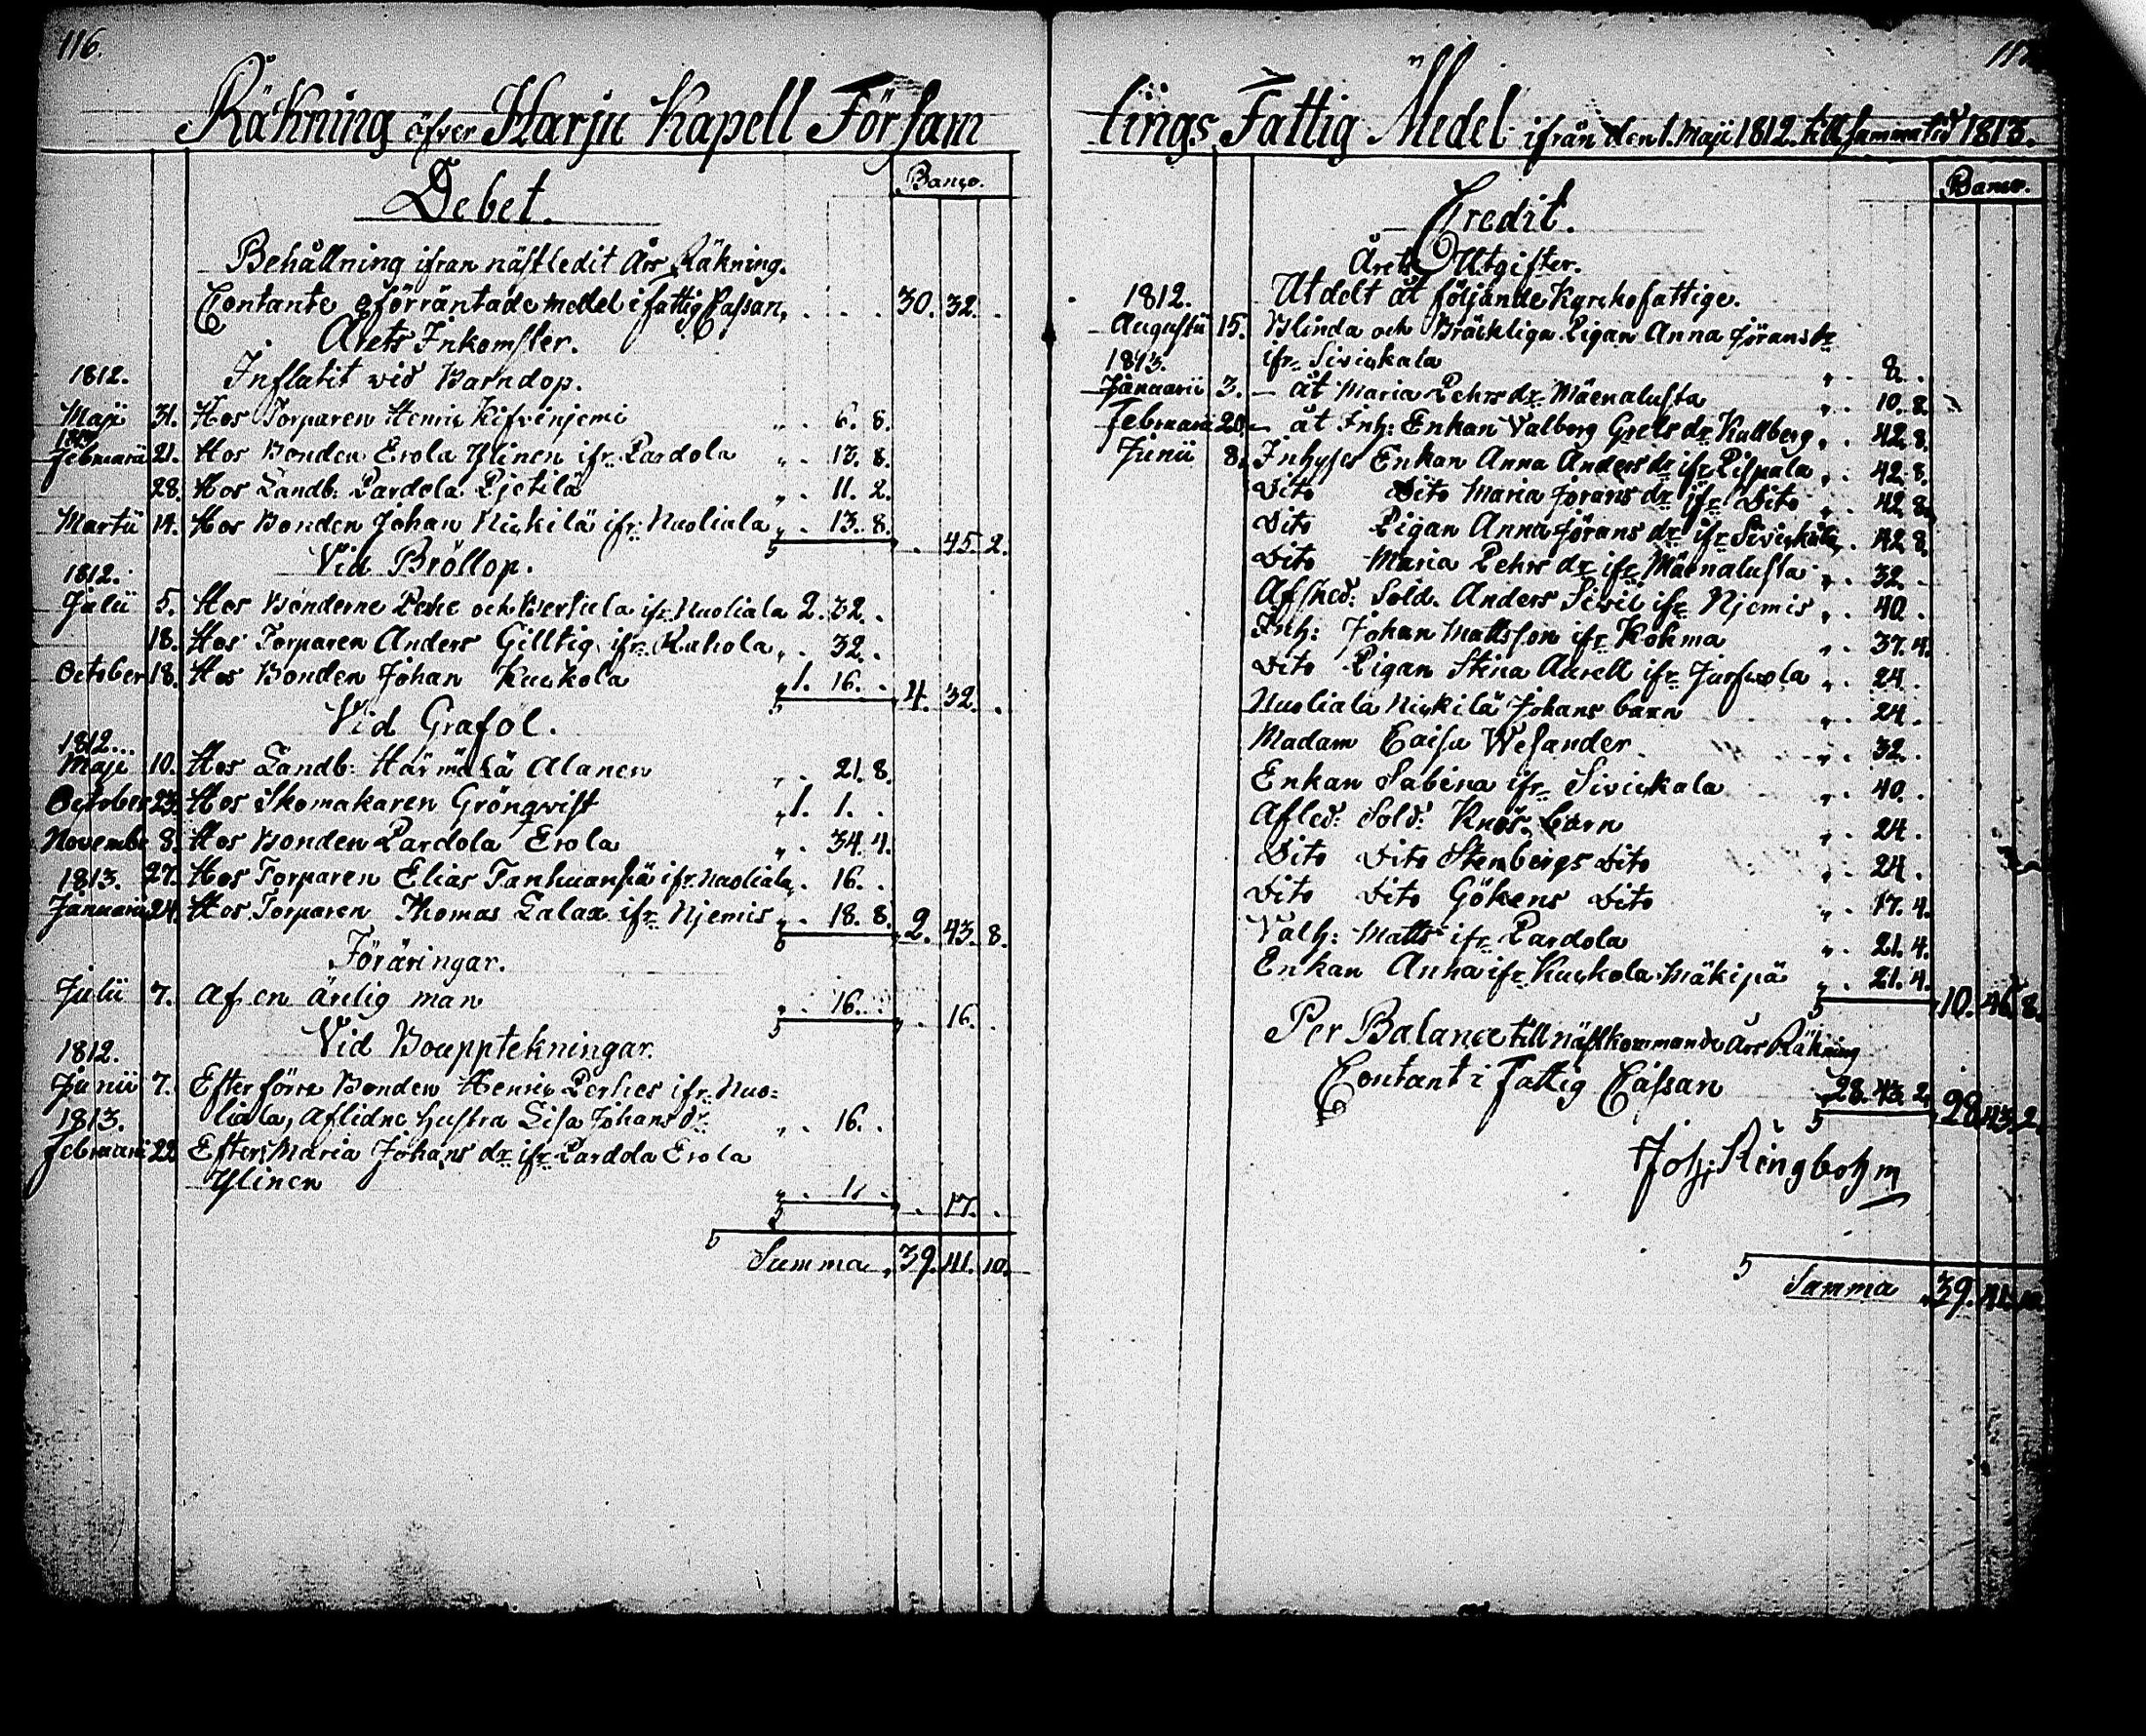 116.
Räkning öfver Harju Kapell Försam
Debet.
Banco.
Behållning ifrån nästledit Års Räkning.
Contante oförräntade medel i fattig Cassan, . . . 30. 32. .
Årets Inkomster.
1812. Influtit vid Barndop.
Maji 31. Hos Torparen Henric Kifvenjemi „ . 6. 8.
1813.
Februarii 21. Hos Bonden Erola Ylinen ifr. Pardola „ . 13. 8.
28. Hos Landb: Pardola Pjetilä „ . 11. 2.
Martii 14. Hos Bonden Johan Nickilä ifr. Nuoliala „ . 13. 8. . 45. 2.
Vid Bröllop.
1812.
Julii 5. Hos Bönderne Perhe och Bertula ifr. Nuoliala 2. 32. .
18. Hos Torparen Anders Gilltig ifr. Rahola „ . 32. .
October 18. Hos Bonden Johan Kuckola „ 1. 16. . 4. 32. .
Vid Grafol.
1812.
Maji 10. Hos Landb: Härmälä Alanen „ . 21. 8.
October 23. Hos Skomakaren Grönqvist „ 1. 1. .
Novembe 8. Hos Bonden Pardola Erola „ . 34. 4.
1813. 27. Hos Torparen Elias Tanhuanpä ifr. Nuoliala „ . 16. .
Januarii 24. Hos Torparen Thomas Salax ifr. Njemis „ . 18. 8. 2. 43. 8.
Föräringar.
Julii 7. Af en ärelig man „ . 16. . . 16. .
Vid Bouppteckningar.
1812.
Junii 7. Efter förre Bonden Henric Perhes ifr. Nuo=
1813. liala, aflidne hustru Lisa Johans dr. „ . 16. .
Februarii 22. Efter Maria Johans dr. ifr. Pardola Erola
Ylinen „ . 1. . . 17. .
Summa „ 39. 41. 10.
lings Fattig Medel ifrån den 1. Maji 1812. till samma tid 1813.
Credit.
Banco.
Årets Utgifter.
1812. Utdelt åt följande Kyrkofattige.
Augusti 15. Blinda och Bräckliga Pigan Anna Jörans dr.
1813. ifr. Sivickala „ . 8. .
Januarii 3. — åt Maria Pehrs dr. Mäenalusta „ . 10. 8.
Februarii 20. — åt Inh: Enkan Valborg Grels dr. Kullberg „ . 42. 8.
Junii 8. Inhyses Enkan Anna Anders dr. ifr. Pispala „ . 42. 8.
Dito Dito Maria Jörans dr. ifr. Dito „ . 42. 8.
Dito Pigan Anna Jörans dr. ifr. Sivickala „ . 42. 8.
Dito Maria Pehrs dr. ifr. Mäenalusta „ . 32. .
Afsked: Sold. Anders Sivil ifr. Njemis „ . 40. .
Inh: Johan Mattsson ifr. Kohma „ . 37. 4.
Dito Pigan Stina Aurell ifr. „ . 24. .
Nuoliala Nickilä Johans barn „ . 24. .
Madam Caisa Wesander „ . 32. .
Enkan Sabina ifr. Sivickala „ . 40. .
Afled: Sold: Knös barn „ . 24. .
Dito Dito Stenbergs Dito „ . 24. .
Dito Dito Gökens Dito „ . 17. 4.
Valh: Matts ifr. Pardola „ . 21. 4.
Enkan Anna ifr. Kuckola Mäkipä „ . 21. 4. 10. 46. 8.
Per Balance till nästkommande Års Räkning
Contant i Fattig Cassan „ 28. 43. 2. 28. 43. 2.
Joh: Ringbohm
Summa „ 39. 41. 10.